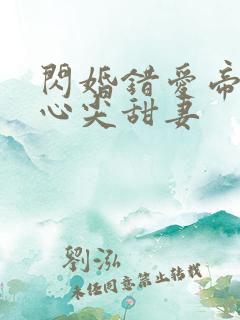 閃婚錯愛帝
心尖甜妻
劉泓
未經同意禁止轉載